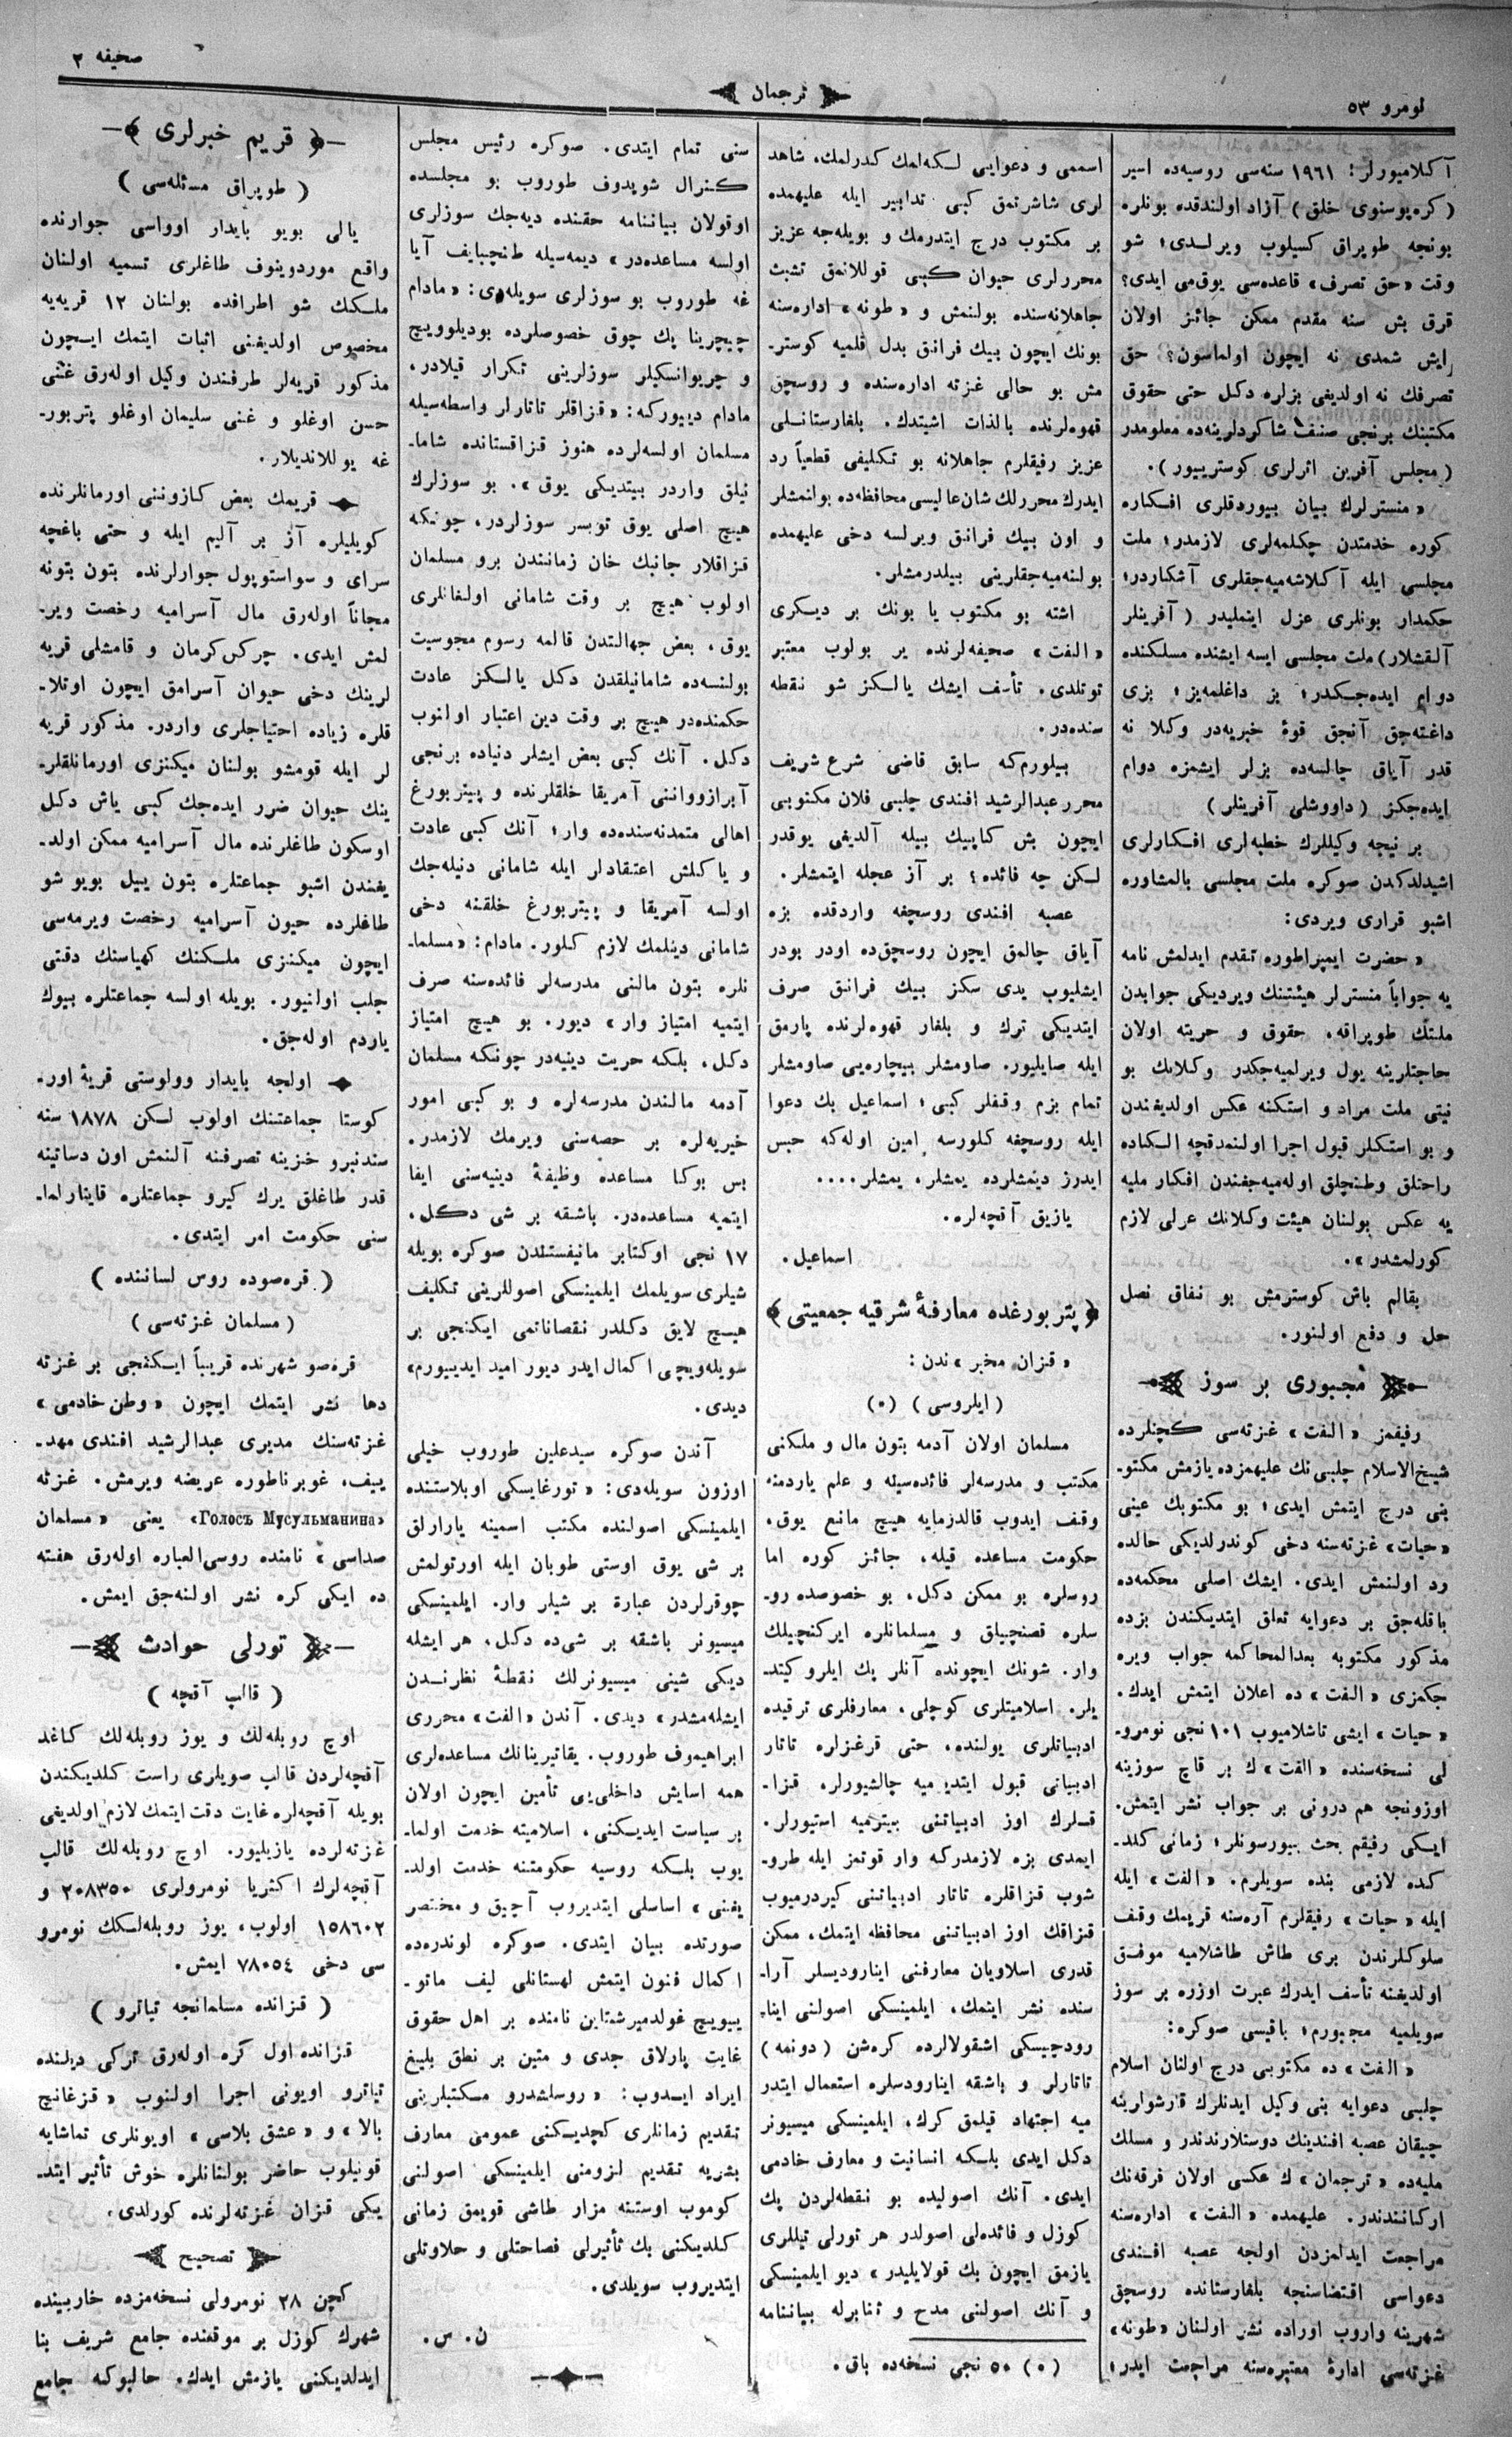 صحیفه ۲
ترجمان
نومرو ۵۳
آکلامیورلر: ۱۹۶۱ سنه‌سی روسیه‌ده اسیر
(کره‌پوسنوی خلق) آزاد اولندقده بونلره
بونجه طوپراق کسیلوب ویرلدی؛ شو
وقت «حق تصرف» قاعده‌سی یوق‌می ایدی؟
قرق بش سنه مقدم ممکن جائز اولان
ایش شمدی نه ایچون اولماسون؟ حق
تصرفك نه اولدیغی بزلره دکل حتی حقوق
مکتبنك برنجی صنف شاکردلرینه‌ده معلومدر
(مجلس آفرین اثرلری کوسترییور).
«منسترلرك بیان بیوردقلری افکاره
کوره خدمتدن چکلمه‌لری لازمدر؛ ملت
مجلسی ایله آکلاشه‌میه‌جقلری آشکاردر؛
حکمدار بونلری عزل ایتملیدر (آفرینلر
آلقشلار) ملت مجلسی ایسه ایشنده مسلکنده
دوام ایده‌جکدر؛ بز داغلمه‌یز؛ بزی
داغته‌جق آنجق قوهٔ خبریه‌در وکلا نه
قدر آیاق چالسه‌ده بزلر ایشمزه دوام
ایده‌جکز (داووشلی آفرینلر)
بر نیجه وکیللرك خطبه‌لری افکارلری
اشیدلدکدن صوکره ملت مجلسی بالمشاوره
اشبو قراری ویردی:
«حضرت ایمپراطوره تقدم ایدلمش نامه
یه جواباً منسترلر هیئتنك ویردیکی جوابدن
ملتك طوپراقه، حقوق و حریته اولان
حاجتلرینه یول ویرلمیه‌جکدر وکلانك بو
نیتی ملت مراد و استکنه عکس اولدیغندن
و بو استکلر قبول اجرا اولنمدقچه الکاده
راحتلق وطنچلق اوله‌میه‌جغندن افکار ملیه
یه عکس بولنان هیئت وکلانك عزلی لازم
کورلمشدر».
بقالم باش کوسترمش بو نفاق نصل
حل و دفع اولنور.
مجبوری بر سوز
رفیقمز «الفت» غزته‌سی کچنلرده
شیخ‌الاسلام چلبی‌نك علیهمزده یازمش مکتو-
بنی درج ایتمش ایدی؛ بو مکتوبك عینی
«حیات» غزته‌سنه دخی کوندرلدیکی حالده
رد اولنمش ایدی. ایشك اصلی محکمه‌ده
باقله‌جق بر دعوایه تعلق ایتدیکندن بزده
مذکور مکتوبه بعدالمحاکمه جواب ویره
جکمزی «الفت»ده اعلان ایتمش ایدك.
«حیات» ایشی تاشلامیوب ۱۰۱ نجی نومرو-
لی نسخه‌سنده «الفت»ك بر قاچ سوزینه
اوزونجه هم درونی بر جواب نشر ایتمش.
ایکی رفیقم بحث بیورسونلر؛ زمانی کلد-
کده لازمی بنده سویلرم. «الفت» ایله
ایله «حیات» رفیقلرم آره‌سنه قریمك وقف
سلوکلرندن بری طاش طاشلامیه موفق
اولدیغنه تأسف ایدرك عبرت اوزره بر سوز
سویلمیه مجبورم؛ باقیسی صوکره:
«الفت»ده مکتوبی درج اولنان اسلام
چلبی دعوایه بنی وکیل ایدنلرك قارشولرینه
چیقان عصبه افندینك دوستلارندندر و مسلك
ملیه‌ده «ترجمان»ك عکسی اولان فرقه‌نك
ارکانندندر. علیهمده «الفت» اداره‌سنه
مراجعت ایدلمزدن اولجه عصبه افندی
دعواسی اقتضاسنجه بلغارستانده روسچق
شهرینه واروب اوراده نشر اولنان «طونه»
غزته‌سی ادارهٔ معتبره‌سنه مراجعت ایدر؛
اسممی و دعوایی لکه‌لمك کدرلمك، شاهد
لری شاشرتمق کبی تدابیر ایله علیهمده
بر مکتوب درج ایتدرمك و بویله‌جه عزیز
محررلری حیوان کبی قوللانمق تشبث
جاهلانه‌سنده بولنمش و «طونه» اداره‌سنه
بونك ایچون بیك فرانق بدل قلمیه کوستر-
مش بو حالی غزته اداره‌سنده و روسچق
قهوه‌لرنده بالذات اشیتدك. بلغارستانلی
عزیز رفیقلرم جاهلانه بو تکلیفی قطعیاً رد
ایدرك محررلك شان‌عالیسی محافظه‌ده بولنمشلر
و اون بیك فرانق ویرلسه دخی علیهمده
بولنه‌میه‌جقلرینی بیلدرمشلر.
اشته بو مکتوب یا بونك بر دیکری
«الفت» صحیفه‌لرنده یر بولوب معتبر
توتلدی. تأسف ایشك یالکز شو نقطه
سنده‌در.
بیلورم‌که سابق قاضی شرع شریف
محرر عبدالرشید افندی چلبی فلان مکتوبی
ایچون بش کاپیك بیله آلدیغی یوقدر
لکن چه فائده؛ بر آز عجله ایتمشلر.
عصبه افندی روسچغه واردقده بزه
آیاق چالمق ایچون روسچق‌ده اودر بودر
ایشلیوب یدی سکز بیك فرانق صرف
ایتدیکی ترك و بلغار قهوه‌لرنده پارمق
ایله صایلیور. صاومشلر بیچاره‌یی صاومشلر
تمام بزم وقفلر کبی؛ اسماعیل بك دعوا
ایله روسچغه کلورسه امین اوله‌که حبس
ایدرز دیمشلرده یمشلر، یمشلر....
یازیق آقچه‌لره.
اسماعیل.
پتربورغده معارفهٔ شرقیه جمعیتی
«قزان مخبر»ندن:
(ایلروسی) (٭)
مسلمان اولان آدمه بتون مال و ملکنی
مکتب و مدرسه‌لر فائده‌سیله و علم یاردمنه
وقف ایدوب قالدرمایه هیچ مانع یوق،
حکومت مساعده قیله، جائز کوره اما
روسلره بو ممکن دکل، بو خصوصده رو-
سلره قصنچیلق و مسلمانلره ایرکنچیلك
وار. شونك ایچونده آنلر پك ایلرو کیتد-
یلر. اسلامیتلری کوچلی، معارفلری ترقیده
ادبیاتلری یولنده، حتی قرغزلره تاتار
ادبیاتی قبول ایتدیرمیه چالشیورلر، قزا-
قسلرك اوز ادبیاتنی بیترمیه استیورلر.
ایمدی بزه لازمدرکه وار قوتمز ایله طرو-
شوب قزاقلره تاتار ادبیاتنی کیردرمیوب
قزاقك اوز ادبیاتنی محافظه ایتمك، ممکن
قدری اسلاویان معارفنی ایناردیسلر آرا-
سنده نشر ایتمك، ایلمینسکی اصولنی اینا-
رودچیسکی اشقولالرده کره‌شن (دونمه)
تاتارلر و باشقه ایناردسلره استعمال ایتدر
میه اجتهاد قیلمق کرك، ایلمینسکی میسیونر
دکل ایدی بلکه انسانیت و معارف خادمی
ایدی. آنك اصولیده بو نقطه‌لردن پك
کوزل و فائده‌لی اصولدر هر تورلی تیللری
یازمق ایچون بك قولایلیدر» دیو ایلمینسکی
و آنك اصولنی مدح و ثنابرله بیاننامه
(٭) ۵۰ نجی نسخه‌ده باق.
سنی تمام ایتدی. صوکره رئیس مجلس
کنرال شویدوف طوروب بو مجلسده
اوقولان بیاننامه حقنده دیه‌جك سوزلری
اولسه مساعده‌در» دیمه‌سیله طنچبایف آیا
غه طوروب بو سوزلری سویله‌دی: «مادام
چیچرینا پك چوق خصوصلرده بودیلوویچ
و چریوانسکیلر سوزلرینی تکرار قیلادر،
مادام دییورکه: «قزاقلر تاتارلر واسطه‌سیله
مسلمان اولسه‌لرده هنوز قزاقستانده شاما-
نیلق واردر بیتدیکی یوق». بو سوزلرك
هیچ اصلی یوق توبسز سوزلردر، چونکه
قزاقلار جانبك خان زماننده‌ن برو مسلمان
اولوب هیچ بر وقت شامانی اولغانلری
یوق، بعض جهالتدن قالمه رسوم مجوسیت
بولنسه‌ده شامانیلقدن دکل یالکز عادت
حکمنده‌در هیچ بر وقت دین اعتبار اولنوب
دکل. آنك کبی بعض ایشلر دنیاده برنجی
آبرازوواننی آمریقا خلقلرنده و پیتربورغ
اهالی متمدنه‌سنده‌ده وار؛ آنك کبی عادت
و یاکلش اعتقادلر ایله شامانی دنیله‌جك
اولسه آمریقا و پیتربورغ خلقنه دخی
شامانی دینلمك لازم کلور. مادام: «مسلما-
نلره بتون مالنی مدرسه‌لر فائده‌سنه صرف
ایتمیه امتیاز وار» دیور. بو هیچ امتیاز
دکل، بلکه حریت دینیه‌در چونکه مسلمان
آدمه مالندن مدرسه‌لره و بو کبی امور
خیریه‌لره بر حصه‌سنی ویرمك لازمدر.
بس بوکا مساعده وظیفهٔ دینیه‌سنی ایفا
ایتمیه مساعده‌در. باشقه بر شی دکل،
۱۷ نجی اوکتابر مانیفستندن صوکره بویله
شیلری سویلمك ایلمینسکی اصوللرینی تکلیف
هیچ لایق دکلدر نقصاناتمی ایکنجی بر
سویله‌ویچی اکمال ایدر دیور امید ایدییورم»
دیدی.
آندن صوکره سیدعلین طوروب خیلی
اوزون سویله‌دی: «تورغایسکی اوبلاستنده
ایلمینسکی اصولنده مکتب اسمینه یارارلق
بر شی یوق اوستی طوبان ایله اورتولمش
چوقرلردن عبارة بر شیلر وار. ایلمینسکی
میسیونر باشقه بر شی‌ده دکل، هر ایشله
دیکی شینی میسیونرلك نقطهٔ نظرندن
ایشله‌مشدر» دیدی. آندن «الفت» محرری
ابراهیموف طوروب. یقاتیرینانك مساعده‌لری
همه اسایش داخلی‌یی تأمین ایچون اولان
بر سیاست ایدیکنی، اسلامیته خدمت اولما-
یوب بلکه روسیه حکومتنه خدمت اولد-
یغنی» اساسلی ایتدیروب آچیق و مختصر
صورتده بیان ایتدی. صوکره لوندره‌ده
اکمال فنون ایتمش لهستانلی لیف ماتو-
ییوویچ غولدمیرشتاین نامنده بر اهل حقوق
غایت پارلاق جدی و متین بر نطق بلیغ
ایراد ایدوب: «روسلشدرو مسکتبلرینی
تقدیم زمانلری کچدیکنی عمومی معارف
بشریه تقدیم لزومنی ایلمینسکی اصولنی
کوموب اوستنه مزار طاشی قویمق زمانی
کلدیکنی بك تأثیرلی فصاحتلی و حلاوتلی
ایتدیروب سویلدی.
ن. س.
قریم خبرلری
(طوپراق مسئله‌سی)
یالی بویو بایدار اوواسی جوارنده
واقع موردوینوف طاغلری تسمیه اولنان
ملکك شو اطرافده بولنان ۱۲ قریه‌یه
مخصوص اولدیغنی اثبات ایتمك ایچون
مذکور قریه‌لر طرفندن وکیل اوله‌رق غنی
حسن اوغلو و غنی سلیمان اوغلو پتربور-
غه یوللاندیلار.
قریمك بعض کازوننی اورمانلرنده
کویلیلره آز بر آلیم ایله و حتی باغچه
سرای و سواستوپول جوارلرنده بتون بتونه
مجاناً اوله‌رق مال آسرامیه رخصت ویر-
لمش ایدی. چرکس‌کرمان و قامشلی قریه
لرینك دخی حیوان آسرامق ایچون اوتلا-
قلره زیاده احتیاجلری واردر. مذکور قریه
لر ایله قومشو بولنان میکنزی اورمانلقلر-
ینك حیوان ضرر ایده‌جك کبی یاش دکل
اوسکون طاغلرنده مال آسرامیه ممکن اولد-
یغندن اشبو جماعتلره بتون ییل بویو شو
طاغلرده حیون آسرامیه رخصت ویرمه‌سی
ایچون میکنزی ملکنك کهیاسنك دقتی
جلب اولنیور. بویله اولسه جماعتلره بیوك
یاردم اوله‌جق.
اولجه بایدار وولوستی قریهٔ اور-
کوستا جماعتنك اولوب لکن ۱۸۷۸ سنه
سندنبرو خزینه تصرفنه آلنمش اون دساتینه
قدر طاغلق یرك کیرو جماعتلره قایتارلما-
سنی حکومت امر ایتدی.
(قره‌صوده روس لساننده)
(مسلمان غزته‌سی)
قره‌صو شهرنده قریباً ایکنجی بر غزته
دها نشر ایتمك ایچون «وطن خادمی»
غزته‌سنك مدیری عبدالرشید افندی مهد-
ییف، غوبرناطوره عریضه ویرمش. غزته
«Голосъ Мусульманина» یعنی «مسلمان
صداسی» نامنده روسی‌العباره اوله‌رق هفته
ده ایکی کره نشر اولنه‌جق ایمش.
تورلی حوادث
(قالپ آقچه)
اوچ روبله‌لك و یوز روبله‌لك کاغد
آقچه‌لردن قالب صویلری راست کلدیکندن
بویله آقچه‌لره غایت دقت ایتمك لازم اولدیغی
غزته‌لرده یازیلیور. اوچ روبله‌لك قالپ
آقچه‌لرك اکثریا نومرولری ۲۰۸۳۵۰ و
۱۵۸۶۰۲ اولوب، یوز روبله‌لکك نومرو
سی دخی ۷۸۰۵٤ ایمش.
(قزانده مسلمانجه تیاترو)
قزانده اول کره اوله‌رق ترکی دیلنده
تیاترو اویونی اجرا اولنوب «قزغانچ
بالا» و «عشق بلاسی» اویونلری تماشایه
قونیلوب حاضر بولنانلره خوش تأثیر ایتد-
یکی قزان غزته‌لرنده کورلدی.
تصحیح
کچن ۲۸ نومرولی نسخه‌مزده خاربینده
شهرك کوزل بر موقعنده جامع شریف بنا
ایدلدیکنی یازمش ایدك. حالبوکه جامع